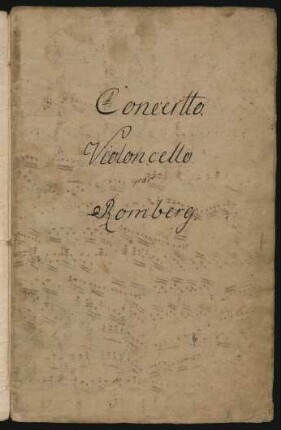 Concertto.
Violoncello
par
Romberg.